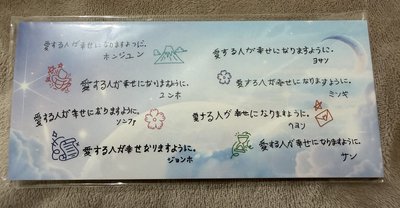 愛する人が幸せになりますように。
ホンジュン
愛する人が幸せになりますように。
ユンホ
愛する人が幸せになりますように。
ソンファ
愛する人が幸せなりますように。
ジョンホ
愛する人が幸せになりますように。
ヨサン
愛する人が幸せになりますように。
ミンギ
愛する人が幸せになりますように。
ウヨン
愛する人が幸せになりますように。
サン